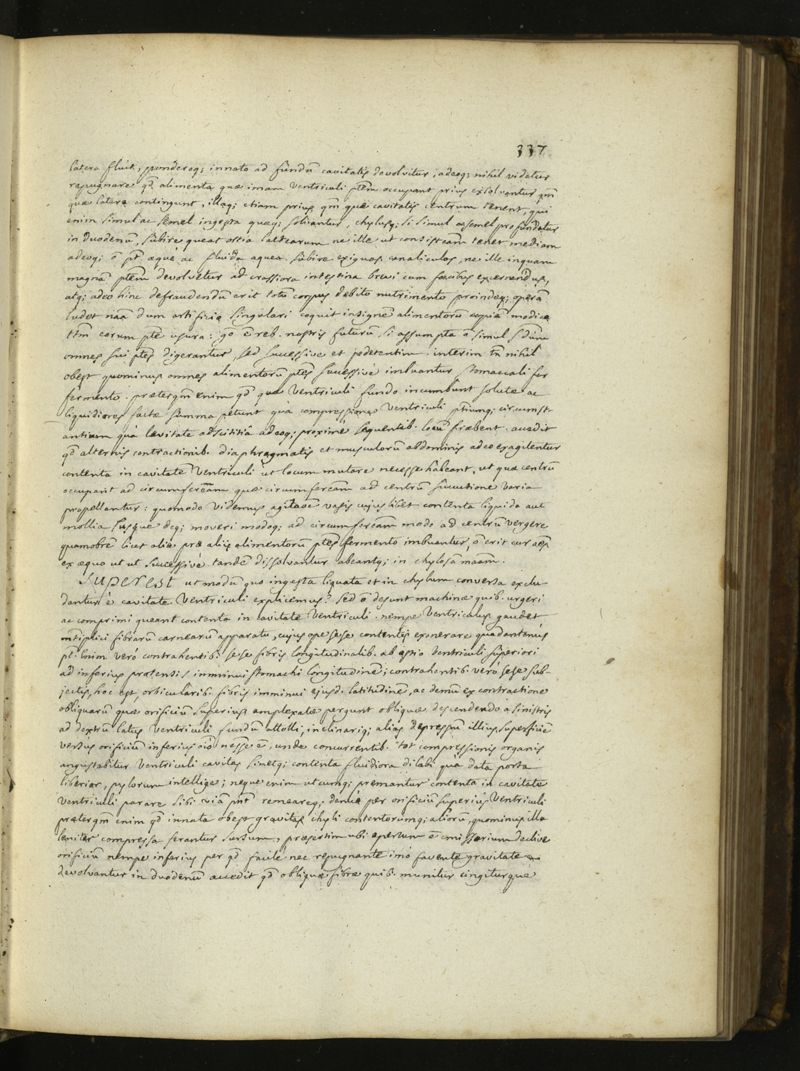 337
latera fluit, pondereq; innato ad fundū cavitatis devolvitur, adeoq; nihil videtur
repugnare qd alimenta quæ imam ventriculi ptem occupant prius exsolvantur qm
quæ latera contingunt, illaq; etiam prius qm quæ cavitatis centrum tenent, qui
enim simul ac semel ingesta quæq; solvantur, chylusq; si simul ac semel profundatur
in duodenū, subire queat ostia lactearum ne ille ut consisteam tenet mediam
adeoq; ō pt æque ac fluida aquea subire exiguos canaliculos, ne ille inquam
magnā ptem devolvetur ad crassiora intestina brevi cum fæcibus excernendus,
atq; adeo hinc defraudendū erit totū corpus debito nutrimento proindeq; operā
ludet nāa dum artificio singulari coquit insigne alimentorū copia modica
tm̄ eorum pte usura: go ē reb. nostris futurū si assumpta ō simul s
omnes sui ptes digerantur, sed successive et pedetentim. interim tn̄ nihil
obest quominus omnes alimentorū ptes successive imbuantur stomacali fer
fermento. præterqm enim qd quæ ventriculi fundo incumbunt solutæ ac
liquidiores factæ summa petunt qua compressiones ventriculi ptiumq; circumst
antium quâ levitate adscititiâ adeoq; proximè sequentib. locū præbent. accedit
qd alternis contractionib. diaphragmatis et musculorū abdominis adeo exagitentur
contenta in cavitate ventriculi ut locum mutare necesse habeant, ut quæ centrū
occupant ad circumfereām quæ circumfereām ad centrū succutione varia
propellantur: quomodo videmus agitatōe vasis cujuslibet contenta liquida aut
mollia susque deq; moveri modoq; ad circumfereām modo ad centrū vergere
quamobrē licet aliæ præ aliis alimentorū ptes fermento imbuantur, ō erit cur
ex æquo ut ut successivè tandē dissolvantur abeantq; in chylosā maām.
Superest ut modū quo ingesta liquata et in chylum conversa exclu
dantur è cavitate ventriculi explicemus? sed ō desunt machinæ quib. urgeri
ac comprimi queant contenta in cavitate ventriculi. nempe ventriculus gaudet
mtiplici fibrarū carnearū apparatu, cujus ope sese contentis exonerare quadantenus
pt. Enim verò contrahentib. sese fibris longitudinalib. ab ostio ventriculi superiori
ad inferius protensis imminui stomachi longitudinē; contrahentib. verò sese sub-
jectis, hoc est, orbicularib. fibris imminui ejusd. latitudinē, ac demū ex contractione
obliquarū quæ orificiū superius amplexatæ pergunt obliquæ descendendo a sinistris
ad dextrū latus ventriculi fundū attolli, inclinariq; aliàs depressū illius superficiē
versus orificiū inferius oīo nesse ē, unde concurrentib. tot compressionis organis
angustabitur ventriculi cavitas sinetq; contenta fluidiora dilabi quâ data porta
liberior, pylorum intellige; neque enim utcumq; premantur contenta in cavitate
ventriculi parare sibi viā pnt remeareq; denuo per orificiū superius ventriculi
præterqm enim qd innata obest gravitas chyli contentorumq; aliorū, quominus illa
leniter compressa ferantur sursum, præsertim ubi apertum ē emissarium declive
orificiū nempe inferius per qd facile nec repugnante imò favente gravitate
devolvantur in duodenū accedit qd obliquæ fibræ quib. munitur cingiturque